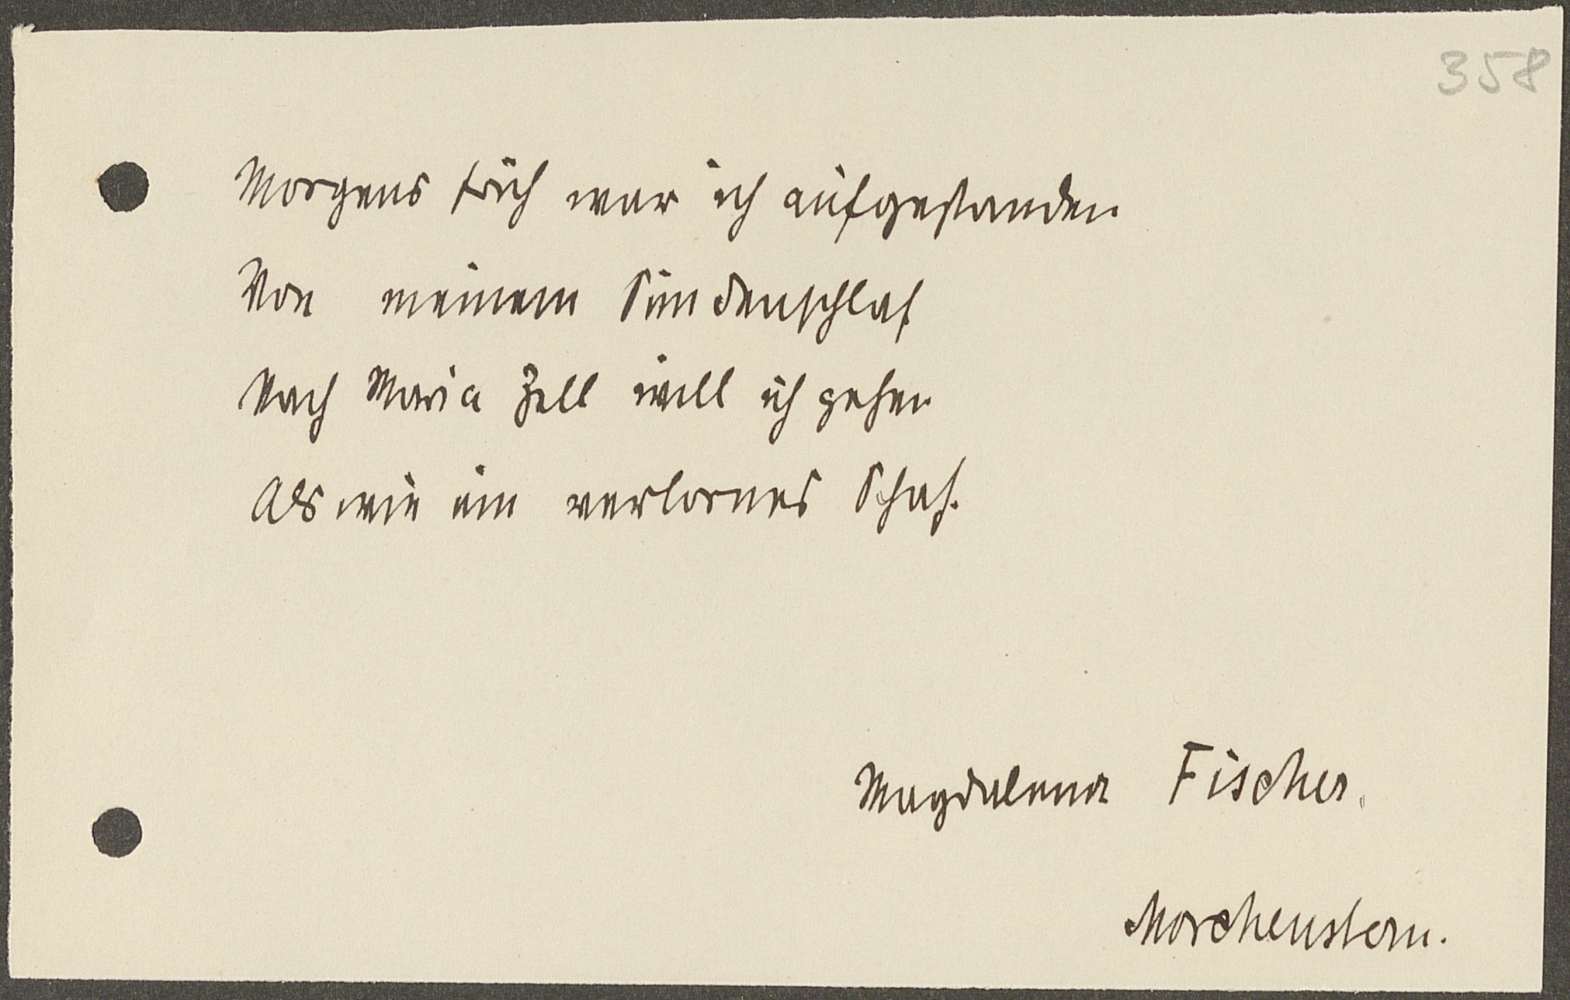 358
Morgens früh war ich aufgestanden
Von meinem Sündenschlaf
Nach Maria Zell will ich gehen
Als wie ein verlornes Schaf.
Magdalena Fischer.
Morchenstern.